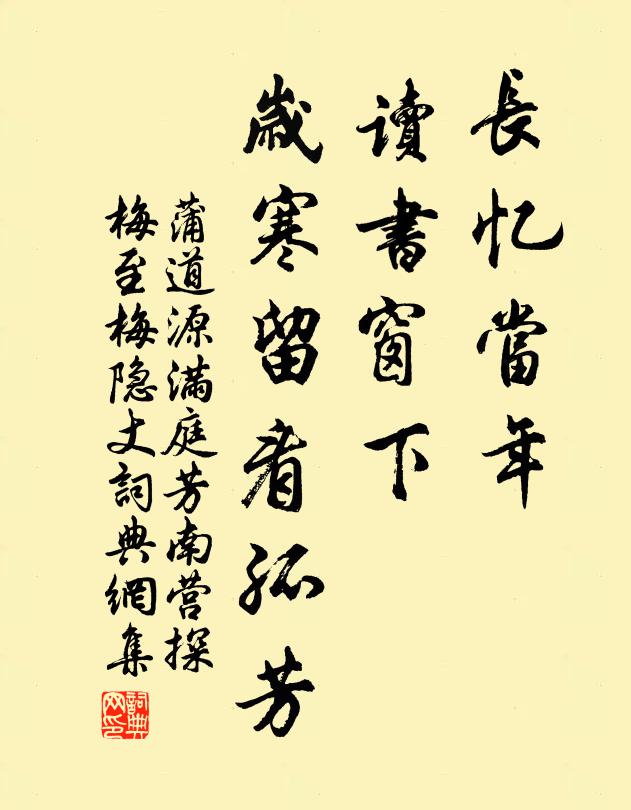 長忆當年
讀書窗下
歲寒留看孤芳
蒲道源满庭芳南营探
梅至梅隐丈詞典網集
詞典网印